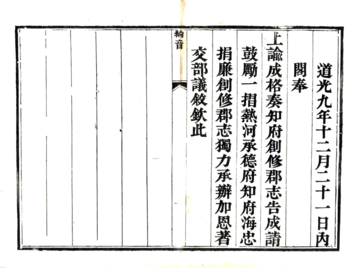 道光九年十二月二十一日內
閣奉
上諭成格奏知府創修郡志告成請
鼓勵一摺熱河承德府知府海忠
捐廉創修郡志獨力承辦加恩著
交部議敘欽此
綸音